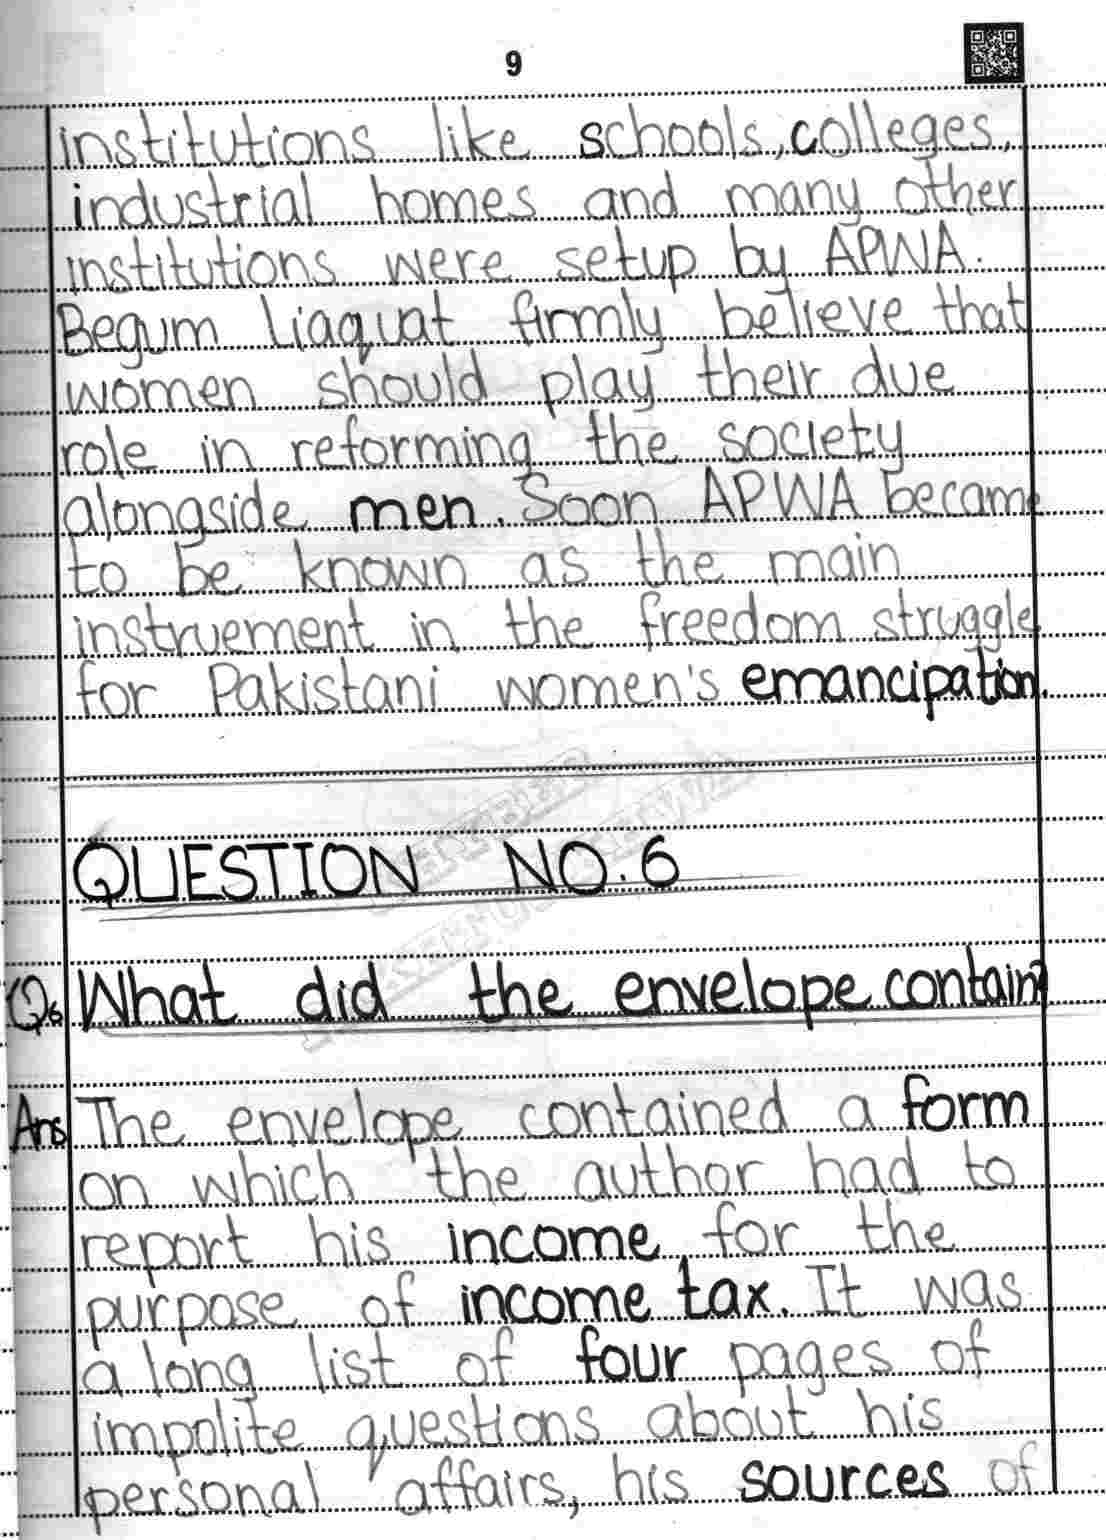 9
institutions like schools, colleges,
industrial homes and many other
institutions were setup by APWA.
Begum Liaquat firmly believe that
women should play their due
role in reforming the society
alongside men. Soon APWA became
to be known as the main
instruement in the freedom struggle
for Pakistani women's emancipation.
QUESTION NO.6
Q6 What did the envelope contain?
Ans The envelope contained a form
on which the author had to
report his income, for the
purpose of income tax. It was
a long list of four pages of
impolite questions about his
personal affairs, his sources of